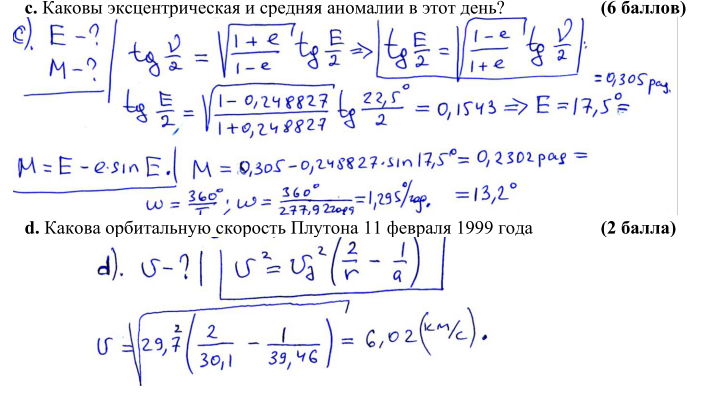 c. Каковы эксцентрическая и средняя аномалии в этот день? (6 баллов)
c). E – ?
M – ?
tg ν/2 = √((1+e)/(1−e)) tg E/2 ⇒ tg E/2 = √((1−e)/(1+e)) tg ν/2
tg E/2 = √((1−0,248827)/(1+0,248827)) tg 22,5°/2 = 0,1543 ⇒ E = 17,5° = = 0,305 рад.
M = E − e·sin E. M = 0,305 − 0,248827·sin 17,5° = 0,2302 рад =
ω = 360°/T; ω = 360°/277,92года = 1,295°/год. = 13,2°
d. Какова орбитальную скорость Плутона 11 февраля 1999 года (2 балла)
d). υ – ? υ² = υ² (2/r − 1/a)
υ = √(29,7² (2/30,1 − 1/39,46)) = 6,02 (км/с).